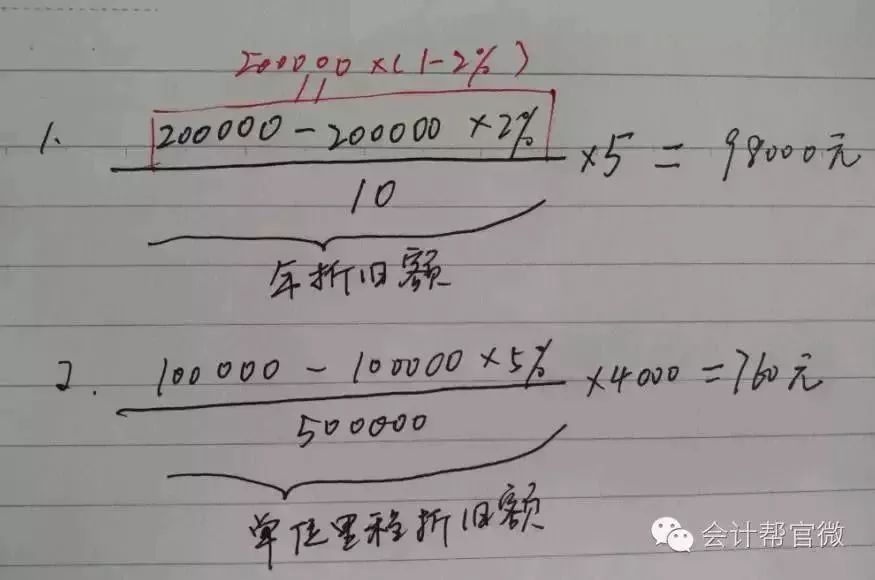 200000×(1-2%)
1. 200000-200000×2%
×5=98000元
10
年折旧额
2. 100000-100000×5%
×4000=760元
500000
单位里程折旧额
会计帮官微